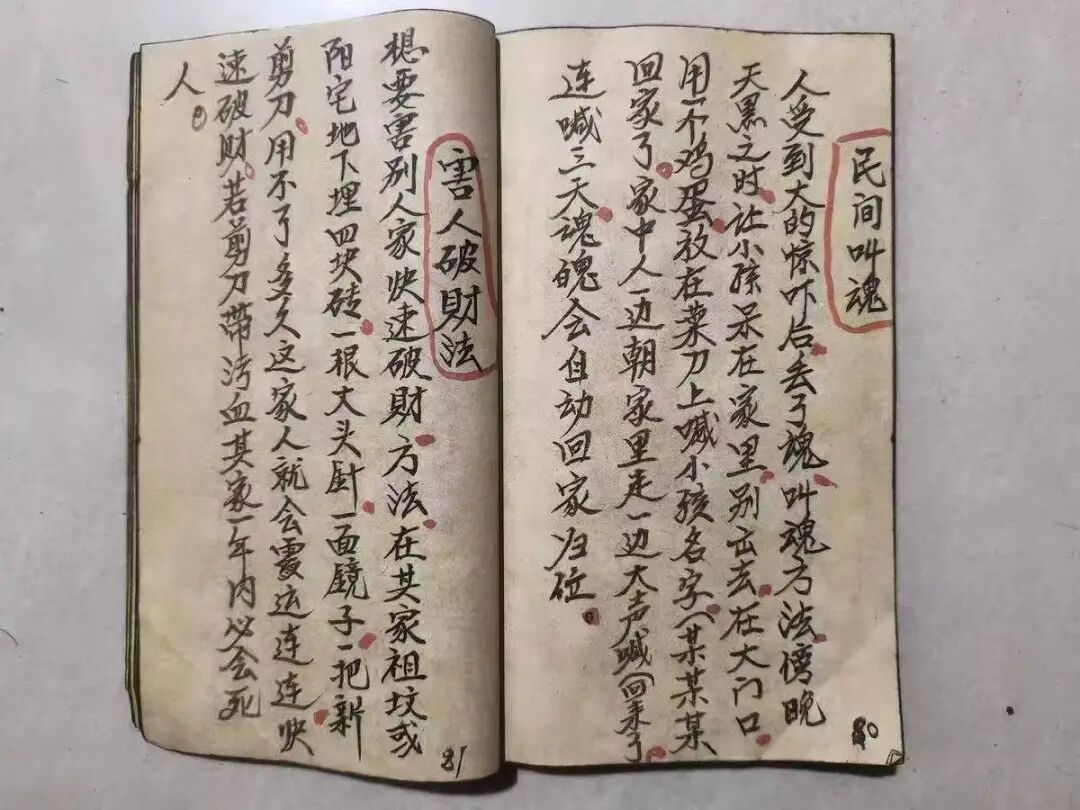 民间叫魂
人受到大的惊吓后丢了魂叫魂方法傍晚
天黑之时让小孩呆在家里别出去在大门口
用一个鸡蛋放在菜刀上喊小孩名字(某某某
回家了家中人一边朝家里走一边大声喊(回来了
连喊三天魂魄会自动回家归位。
80
害人破財法
想要害别人家快速破財方法在其家祖坟或
阳宅地下埋四块砖一根大头针一面镜子一把新
剪刀用不了多久这家人就会霉运连连快
速破財若剪刀帶污血其家一年内必会死
人。
81